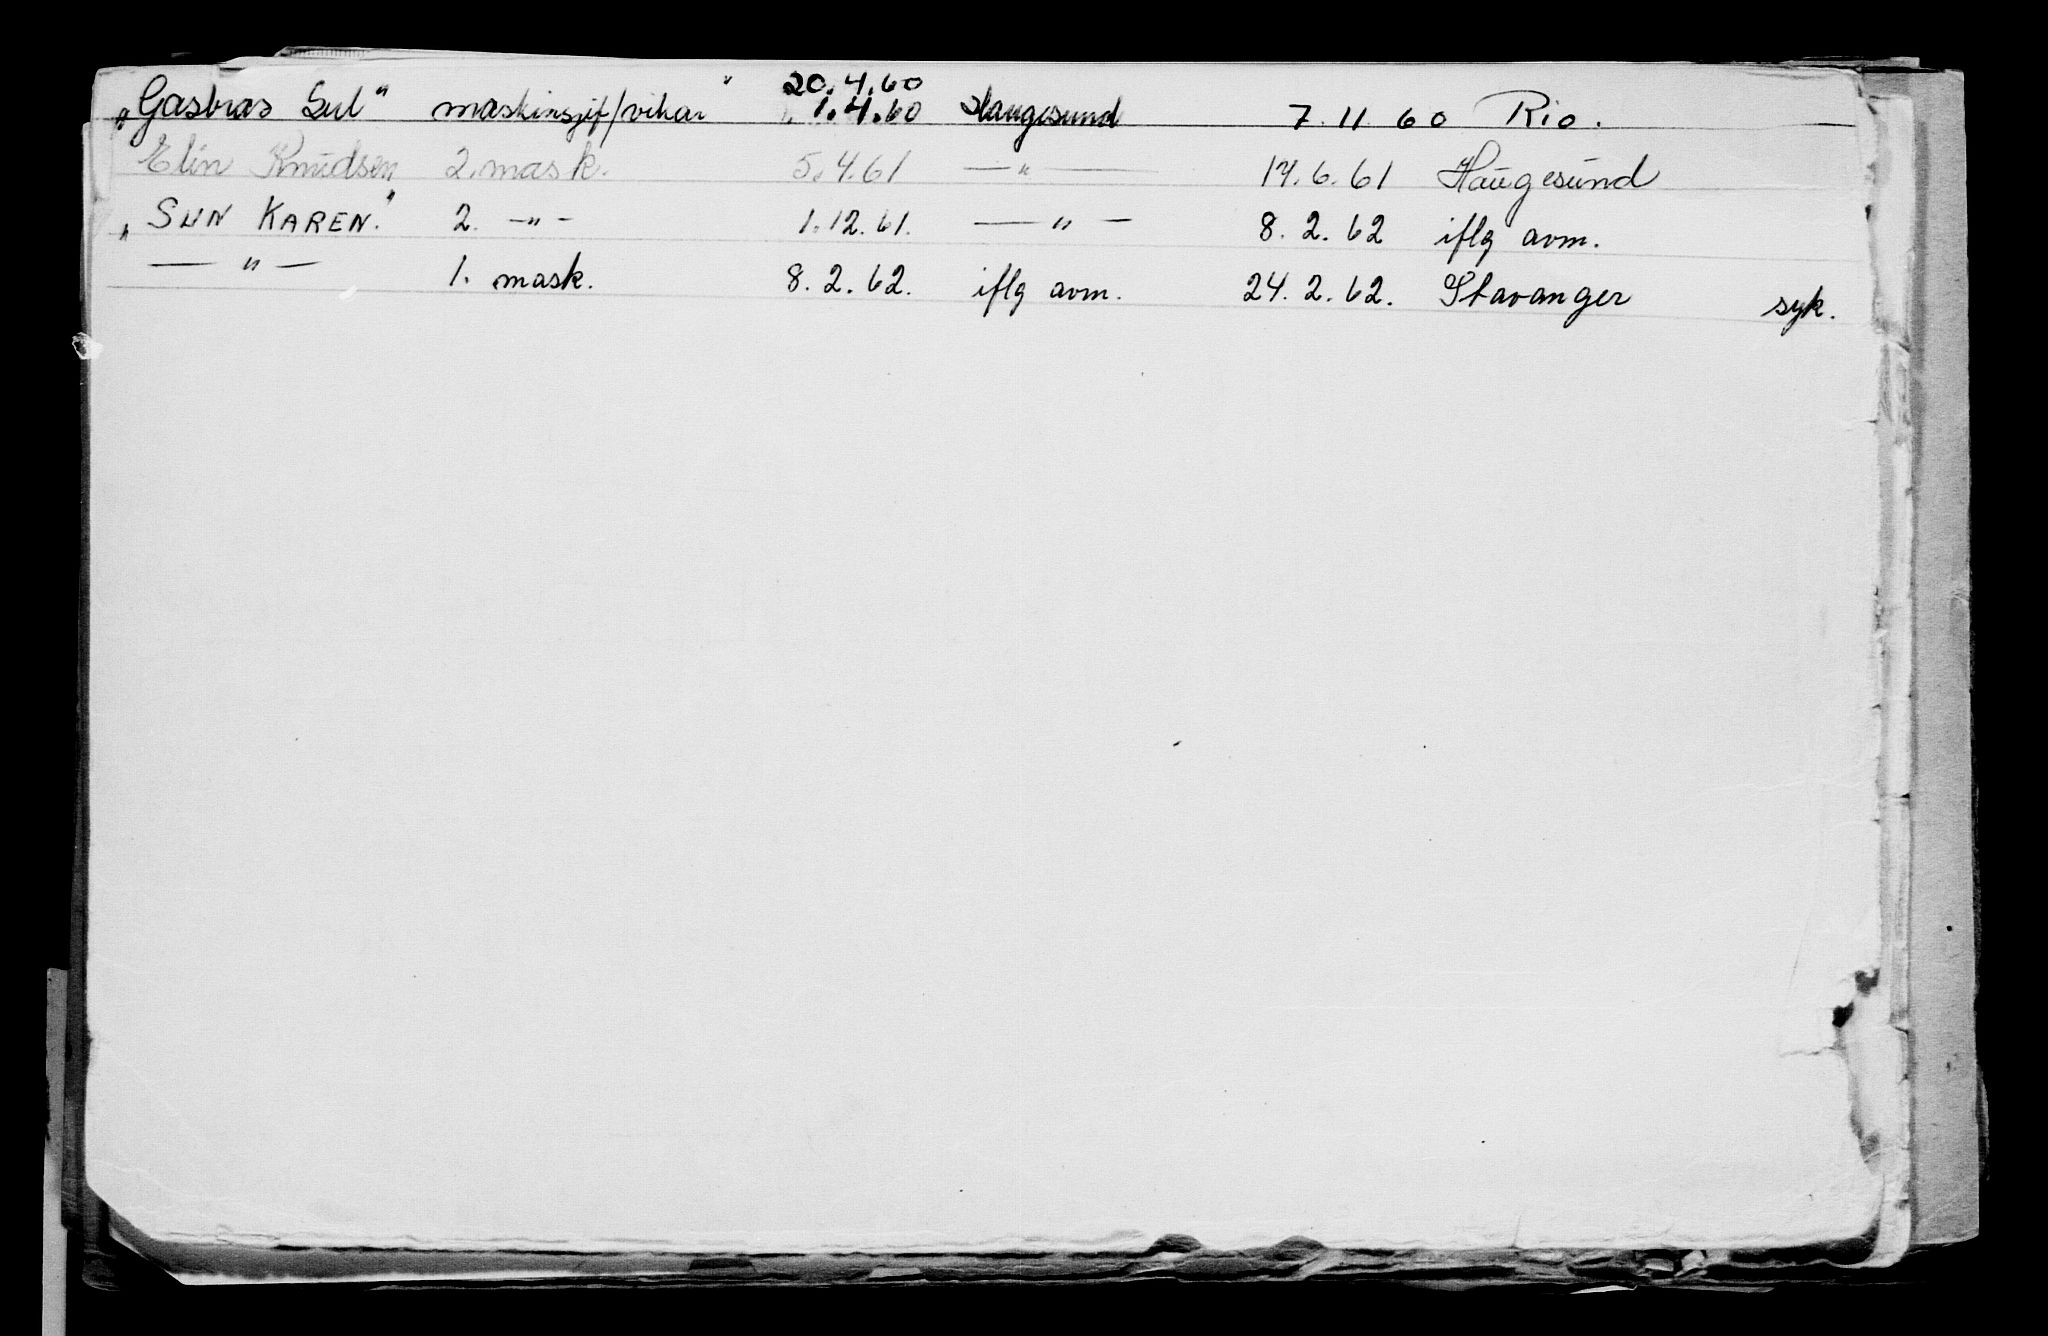 20.4.60
„Gasbras Sul" maskinsjef/vikar" 1.4.60 Haugesund 7.11 60 Rio.
Elin Knudsen 2. mask. 5.4.61 —"— 17.6.61 Haugesund
„SUN KAREN." 2. —"— 1.12.61. —"— 8.2.62 iflg avm.
—"— 1. mask. 8.2.62. iflg avm. 24.2.62. Stavanger syk.